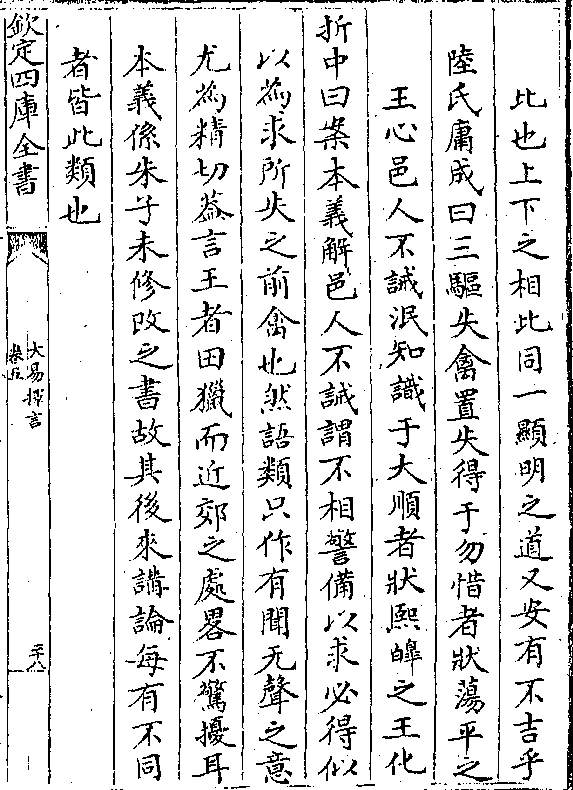 比也上下之相比同一顯明之道又安有不吉乎
陸氏庸成曰三驅失禽置失得于勿惜者狀蕩平之
王心邑人不誡泯知識于大順者狀熙皥之王化
折中曰案本義解邑人不誡謂不相警備以求必得似
以為求所失之前禽也然語類只作有聞无聲之意
尤為精切葢言王者田獵而近郊之處畧不驚擾耳
本義係朱子未修改之書故其後來講論每有不同
者皆此類也
欽定四庫全書
大易擇言
卷五
二十八